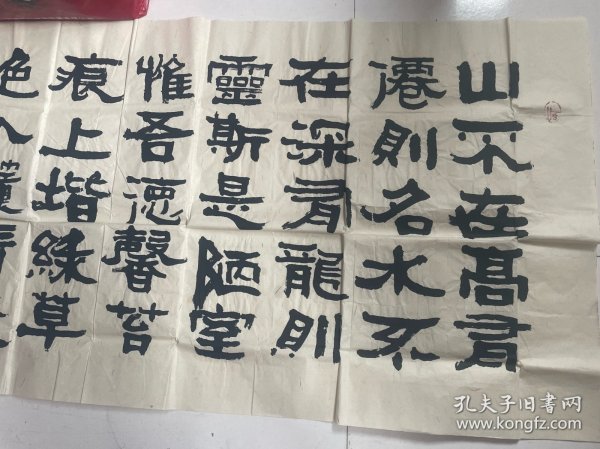 山不在高有
僊則名水不
在深有龍則
靈斯是陋室
惟吾德馨苔
痕上堦綠草
色入簾青
孔夫子旧书网
www.kongfz.com